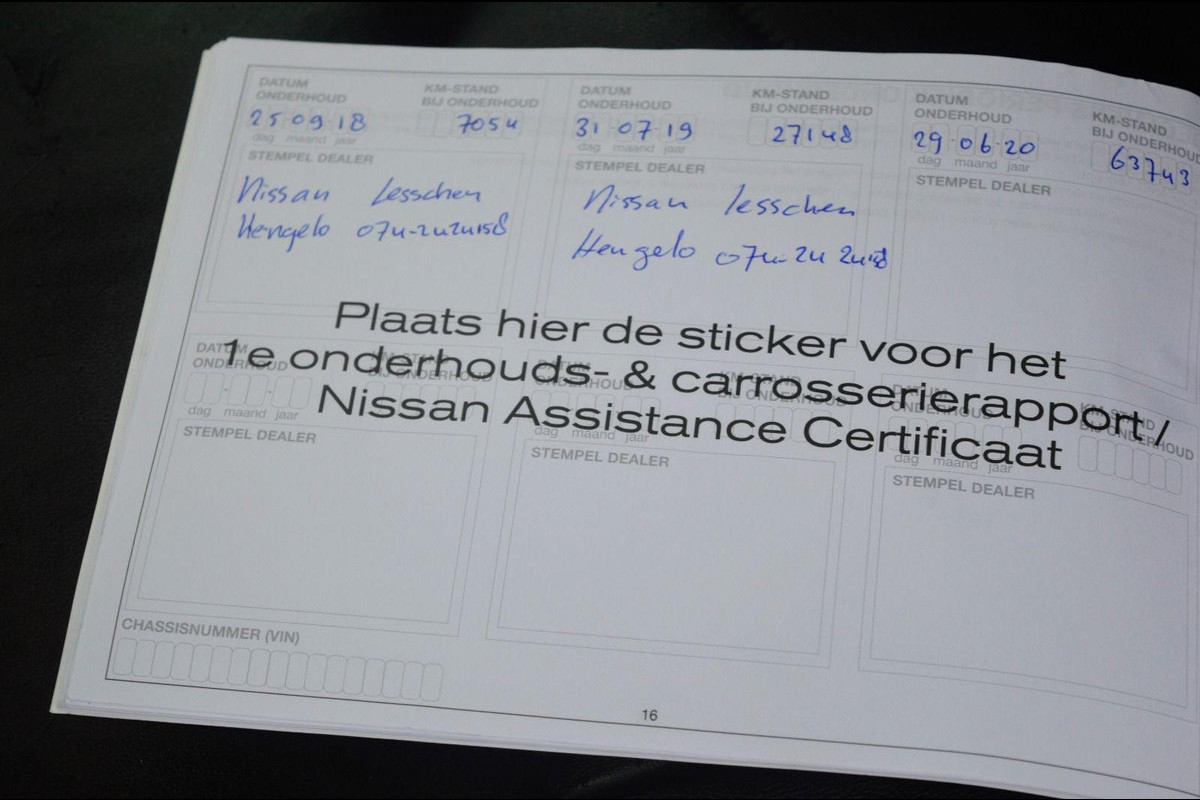 DATUM ONDERHOUD
25 09 18
dag maand jaar
KM-STAND BIJ ONDERHOUD
7054
STEMPEL DEALER
Nissan Lesschen
Hengelo 074-2424158
DATUM ONDERHOUD
31 07 19
dag maand jaar
KM-STAND BIJ ONDERHOUD
27148
STEMPEL DEALER
Nissan Lesschen
Hengelo 074-24 24158
DATUM ONDERHOUD
29 06 20
dag maand jaar
KM-STAND BIJ ONDERHOUD
63743
STEMPEL DEALER
Plaats hier de sticker voor het
1e onderhouds- & carrosserierapport /
Nissan Assistance Certificaat
DATUM ONDERHOUD
dag maand jaar
KM-STAND BIJ ONDERHOUD
STEMPEL DEALER
DATUM ONDERHOUD
dag maand jaar
KM-STAND BIJ ONDERHOUD
STEMPEL DEALER
DATUM ONDERHOUD
dag maand jaar
KM-STAND BIJ ONDERHOUD
STEMPEL DEALER
CHASSISNUMMER (VIN)
16